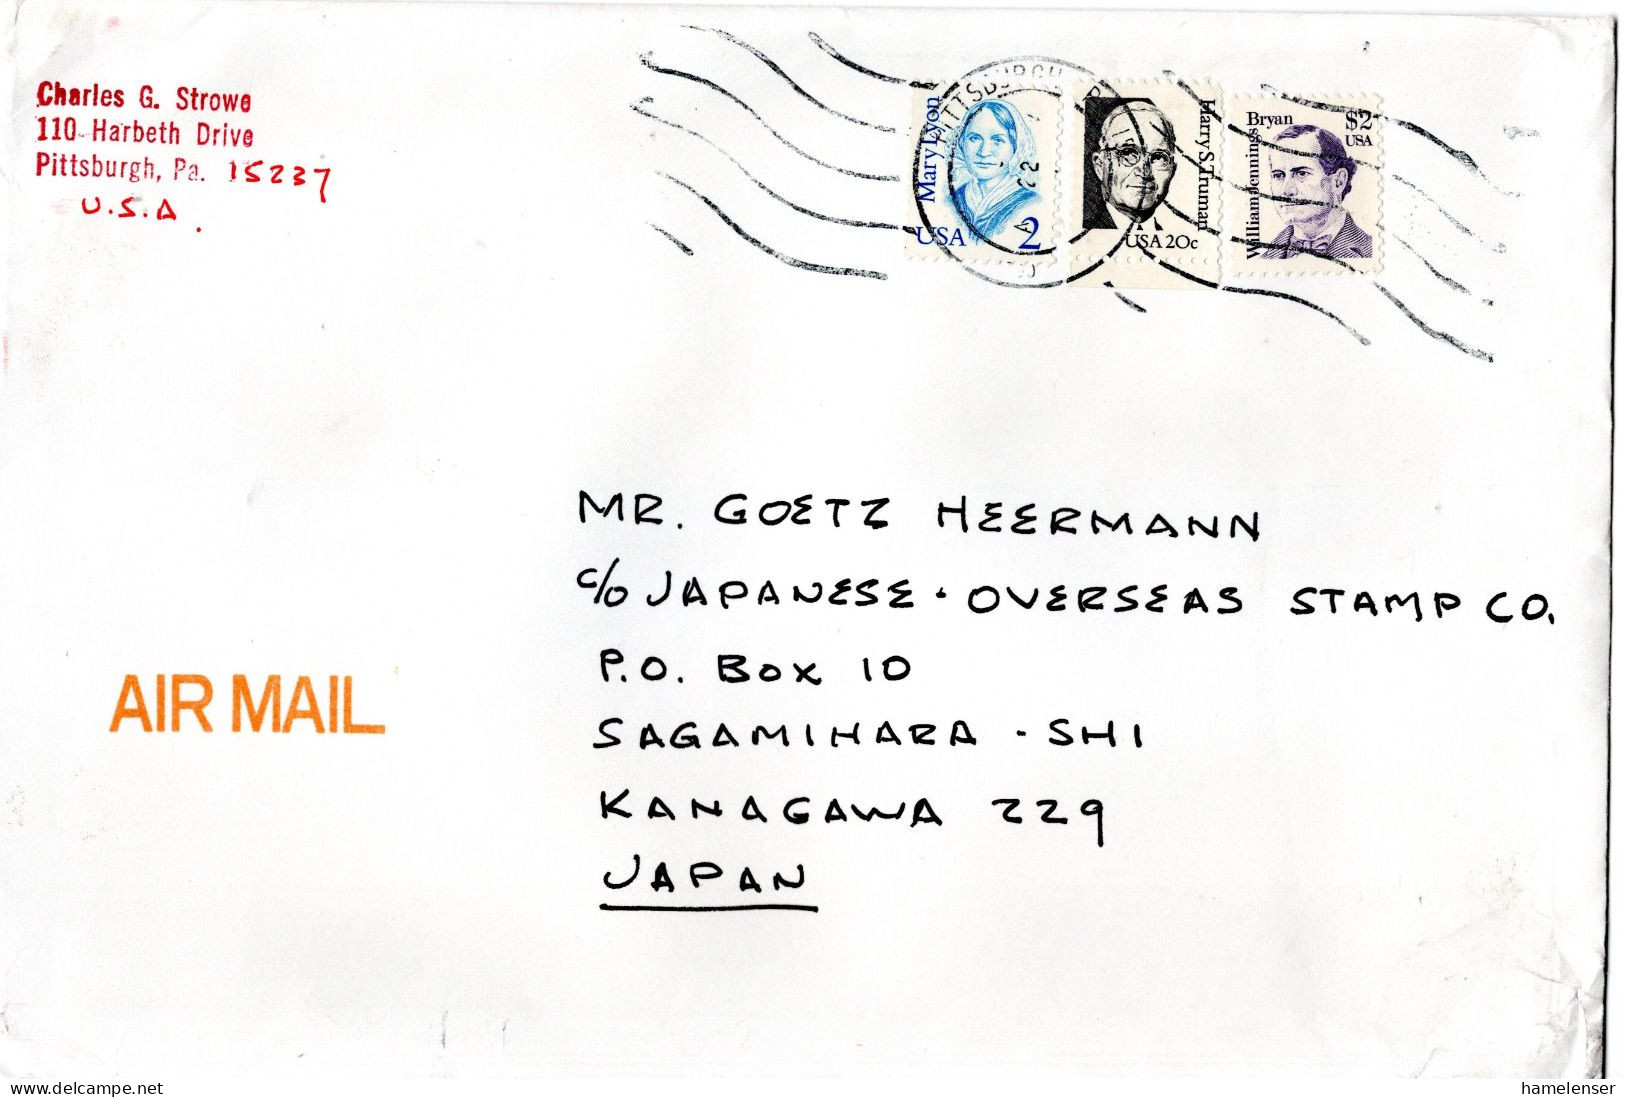 Charles G. Strowe
110 Harbeth Drive
Pittsburgh, Pa. 15237
U.S.A.
PITTSBURGH
22
Mary Lyon
USA 2
Harry S. Truman
USA 20c
William Jennings
Bryan
$2
USA
MR. GOETZ HEERMANN
c/o JAPANESE - OVERSEAS STAMP CO.
P.O. BOX 10
SAGAMIHARA - SHI
KANAGAWA 229
JAPAN
AIR MAIL
www.delcampe.net
hamelenser